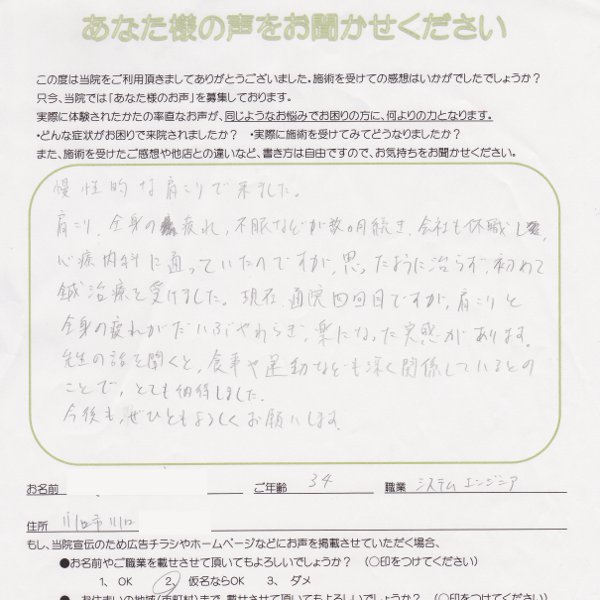 あなた様の声をお聞かせください
この度は当院をご利用頂きましてありがとうございました・施術を受けての感想はいかがでしたでしょうか？
只今、当院では「あなた様のお声」を募集しております。
実際に体験されたかたの率直なお声が、同じようなお悩みでお困りの方に、何よりの力となります。
・どんな症状がお困りで来院されましたか？　・実際に施術を受けてみてどうなりましたか？
また、施術を受けたご感想や他店との違いなど、書き方は自由ですので、お気持ちをお聞かせください。
慢性的な肩こりで来ました。
肩こり、全身の疲れ、不眠などが数ヶ月続き、会社も休職し、
心療内科に通っていたのですが、思ったように治らず、初めて
鍼治療を受けました。現在、通院四回目ですが、肩こりと
全身の疲れがだいぶやわらぎ、楽になった実感があります。
先生の話を聞くと、食事や運動なども深く関係しているとの
ことで、とても納得しました。
今後も、ぜひともよろしくお願いします。
お名前　ご年齢　34　職業　システムエンジニア
住所　川口市川口
もし、当院宣伝のため広告チラシやホームページなどにお声を掲載させていただく場合、
●お名前やご職業を載せさせて頂いてもよろしいでしょうか？　（○印をつけてください）
1、OK　2、仮名ならOK　3、ダメ
●お住まいの地域（市町村）まで、載せさせて頂いてもよろしいでしょうか？（○印をつけてください）